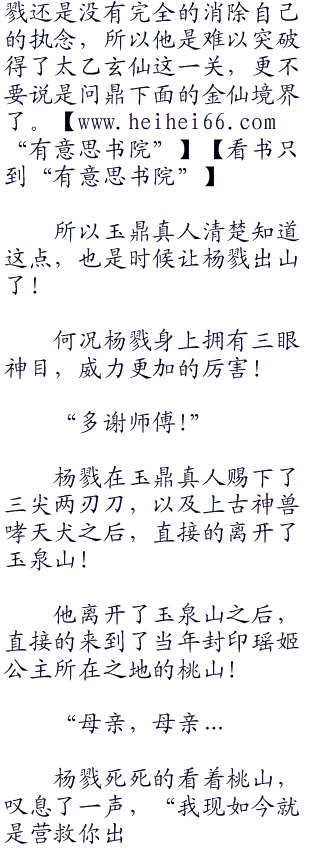 戮还是没有完全的消除自己
的执念，所以他是难以突破
得了太乙玄仙这一关，更不
要说是问鼎下面的金仙境界
了。【www.heihei66.com
“有意思书院”】【看书只
到“有意思书院”】
所以玉鼎真人清楚知道
这点，也是时候让杨戮出山
了！
何况杨戮身上拥有三眼
神目，威力更加的厉害！
“多谢师傅！”
杨戮在玉鼎真人赐下了
三尖两刃刀，以及上古神兽
哮天犬之后，直接的离开了
玉泉山！
他离开了玉泉山之后，
直接的来到了当年封印瑶姬
公主所在之地的桃山！
“母亲，母亲…
杨戮死死的看着桃山，
叹息了一声，“我现如今就
是营救你出